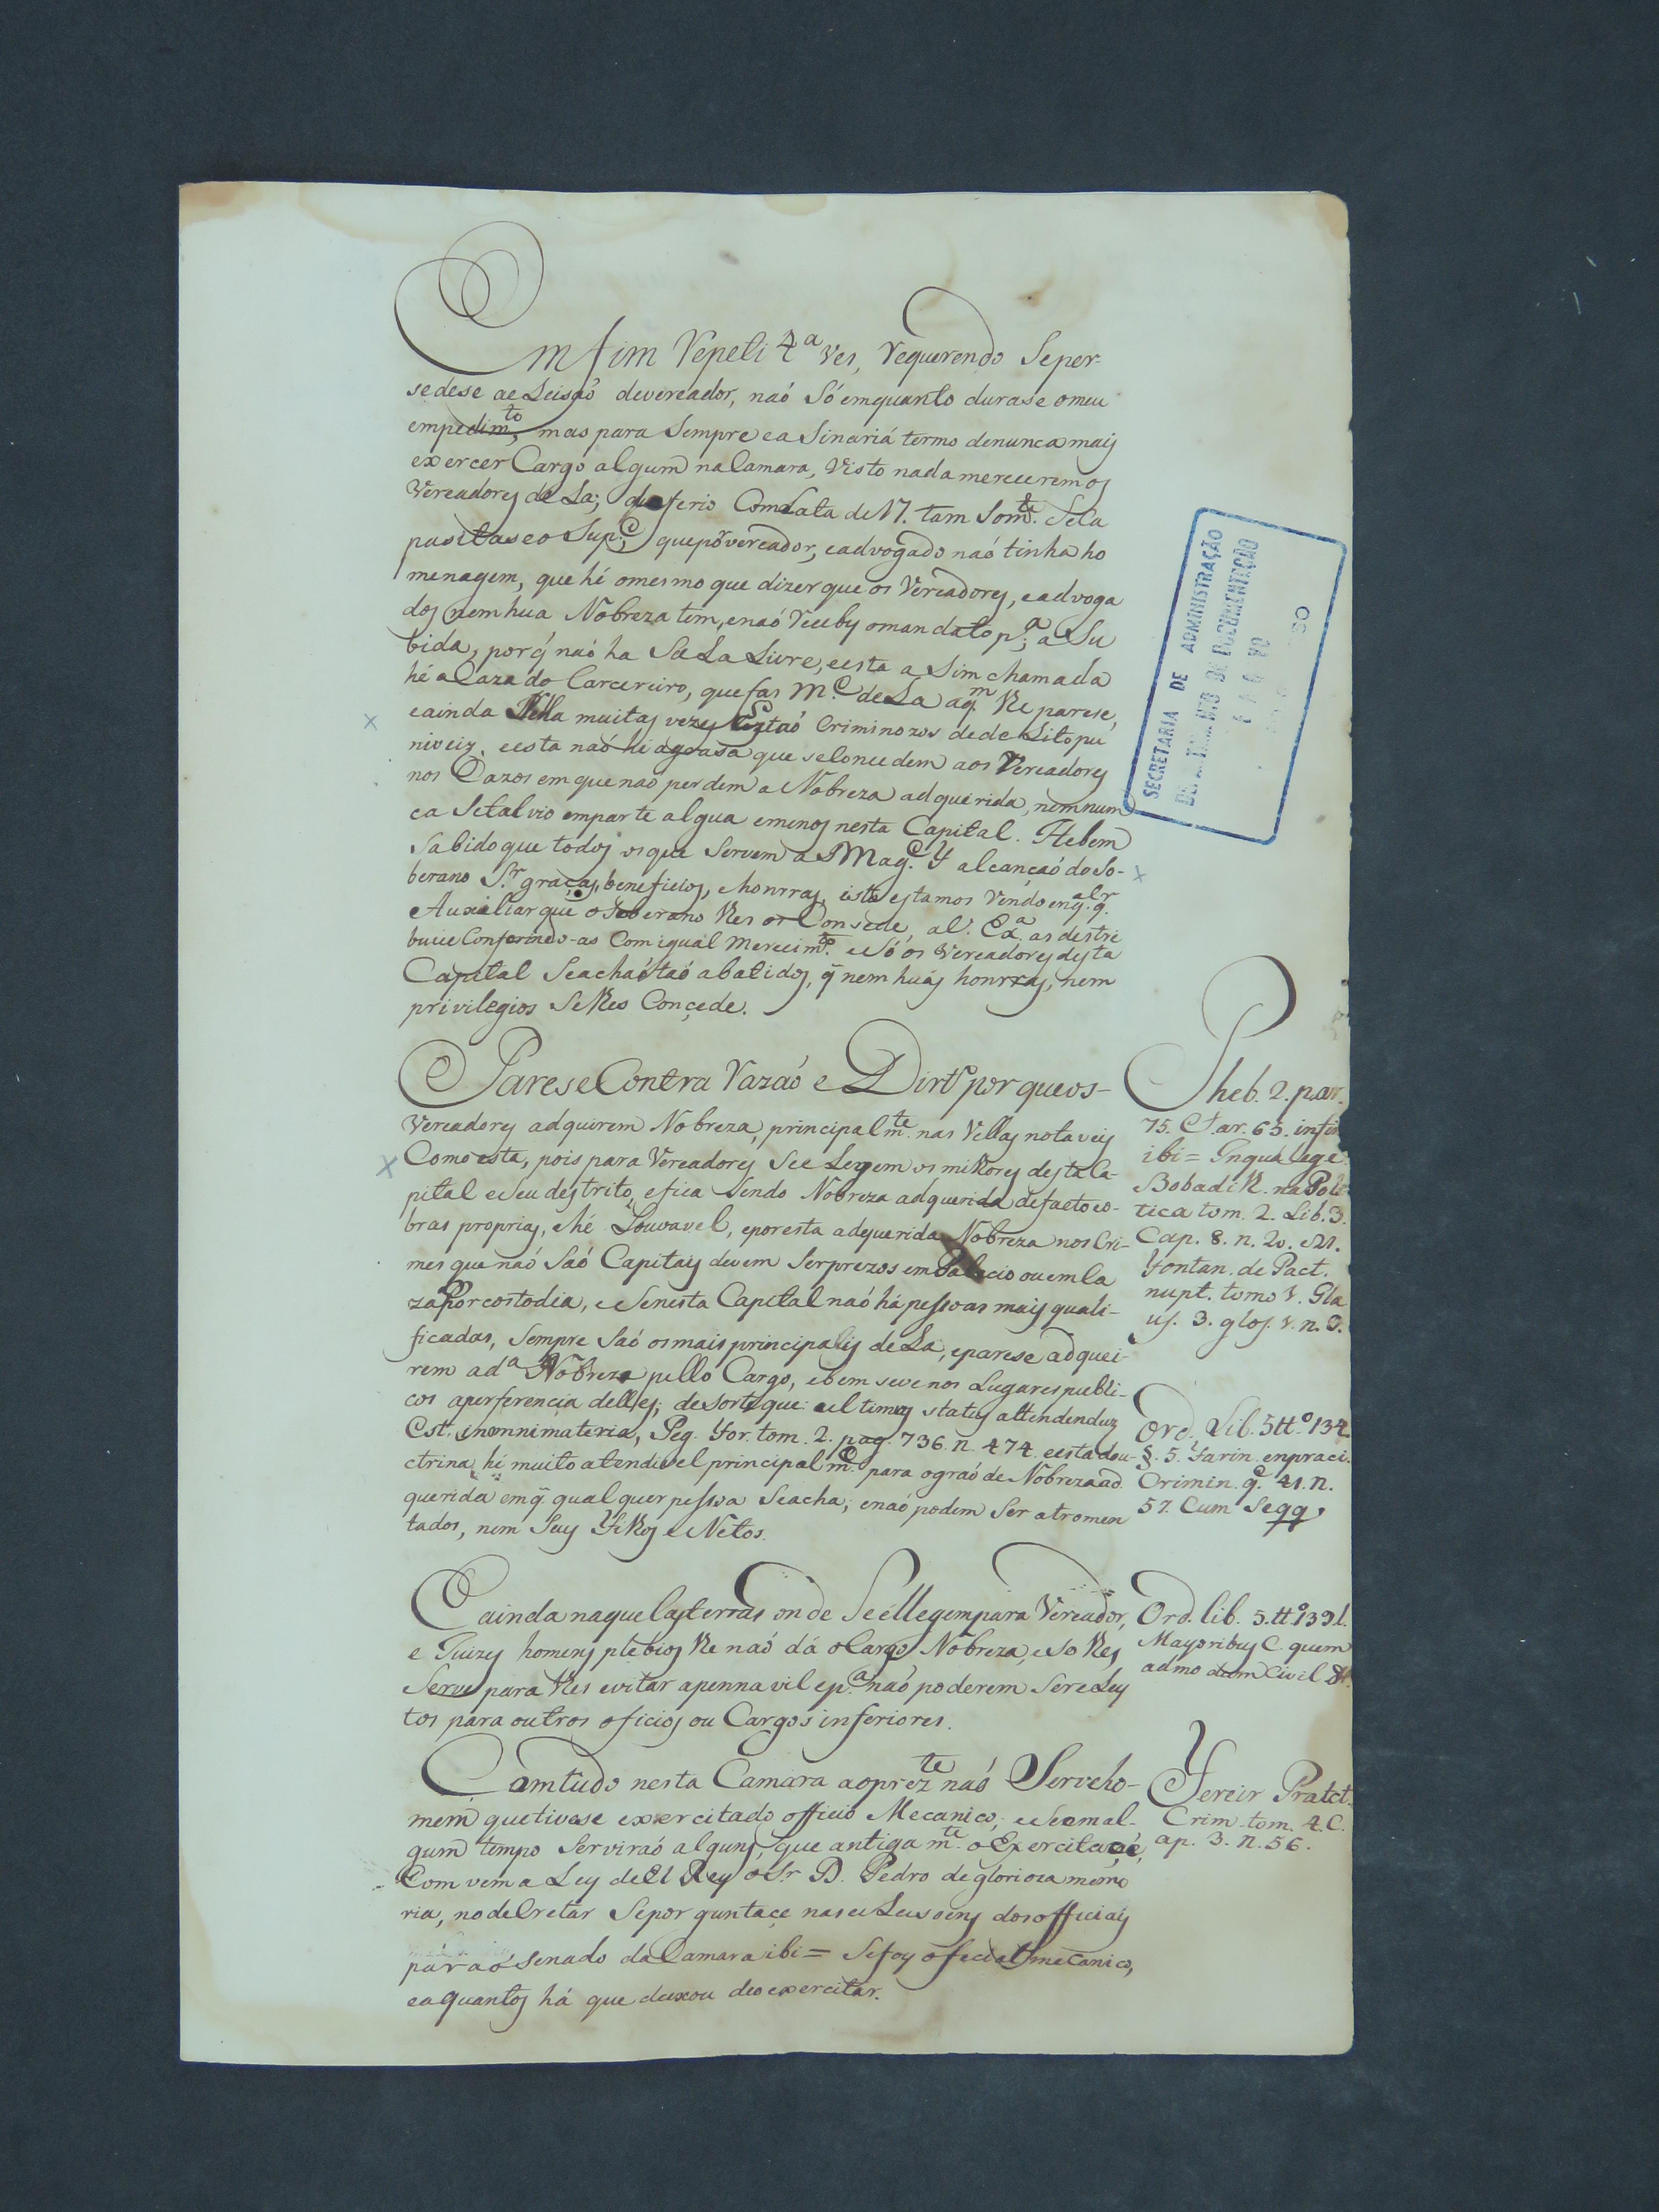 Em fim Repeti 4ª ves, Requerendo Seper-
sedese ae Leisaõ devereador, naó Só emquanto durase omeu
empedim.to, mas para Sempre ea Sinariá termo denunca maij
exercer Cargo algum na Camara, Visto nada mereceremos
Vereadorej de La; deferio Comdata de 17. tam Som.te Sela
pasitaseo Sup.e, quepor vereador, eadvogado naó tinha ho
menagem, que hé omesmo que dizer que os Vereadorej, eadvoga
doj nem hua Nobreza tem, enaó Receby omandato p.ª a Su
bida, porq̃ naó ha Sala Livre, eesta a Sim chamada
hé a Caza do Carcereiro, que fas M.e de La aq.m lhe parese,
eainda Nella muitaj vezej Estaó Criminozos dede Litopu
niveiz, eesta naó hé que seConcedem aos Vereadorej
nos Cazos em que naó perdem a Nobreza adquerida, nem num
ca Setal vio emparte algua emenoj nesta Capital. Hebem
Sabido que todoj os que Servem a S Mag.e F alcançaó do So-
berano S.r graçaj, beneficioj, ehonrraj, isto estamos Vendo
Auxiliar que o Soberano lhes os Consede, a V. Ex.ª as destri
buiie Conferindo-as Com igual Merecim.to eSó os Vereadorej desta
Capital Seachaó taó abatidoj, q̃ nem huãj honrraj, nem
privilegios Selhes Conçede.
Parese Contra Razaó e Dir.to porqueos-
Vereadorej adquirem Nobreza, principalm.te nas Villaj notaveij
Como esta, pois para Vereadorej See Legem os milhorej desta Ca-
pital eSeu destrito, efica Sendo Nobreza adquerida defacto eo-
bras propriaj, ehé Louvavel, eporesta adquerida Nobreza nos Cri-
mes que naó Saó Capitaij devem Serprezos em Palacio ouemCa
za Por costodia, eSenesta Capital naó há pessoas maij quali-
ficadas, Sempre Saó os mais principalij de La, eparese adquei-
rem ad.ª Nobreza pello Cargo, ebem seve nos Lugares publi-
cos aperferencia dellej; de sorte que: ultimuj statuj attendenduz
Est. inomnimateria, Peg. For. tom. 2. pag. 736. n. 474. eesta dou-
ctrina hé muito atendivel principalm.e para ograó de Nobreza ad
querida em q̃ qual quer pessoa Seacha; enaó podem Ser atromen
tados, nem Seuj Filhoj e Netos.
Eainda naquelaj terras onde Seéllegempara Vereador,
e Juizej homenj plebioj lhe naó dá o Cargo Nobreza, eSo lhej
Serve para lhes evitar apenna vil ep.ª naó poderem SereLey
tos para outros oficioj ou Cargos inferiores.
Comtudo nesta Camara aoprez.te naó Serveho-
mem quetivese exercitado officio Mecanico; eSeemal-
gum tempo Serviraó algunj, que antigam.te o Exercitaçé,
Com vem a Ley de El Rey o S.r D. Pedro de glorioza memo
ria, no deCretar Sepor guntaçe nas eLeisoenj dos officiaij
para o Senado da Camara ibi = Sefoy oficial mecanico,
ea quantoj há que deixou deo exercitar.
Pheb. 2. par.
75. Far. 63. infin
ibi = Inqua lege
Bobadilh. na Poli
tica tom. 2. Lib. 3.
Cap. 8. n. 20. e 21.
Fontan. de Pact.
nupt. tomo 1. Cla
uj. 3. gloj. 1. n. 3.
Ord. Lib. 5 tt.º 134
§. 5. Farin. enpraci.
Crimin. q.e 41. n.
57. Cum Seqq
Ord. lib. 5. tt.º 139 l.
Mayoribuj C. quem
admo dum Civil &.
Fereir Pratct.
Crim. tom. 4. C.
ap. 3. n. 56.
SECRETARIA DE ADMINISTRAÇÃO
DEPARTAMENTO DE DOCUMENTAÇÃO